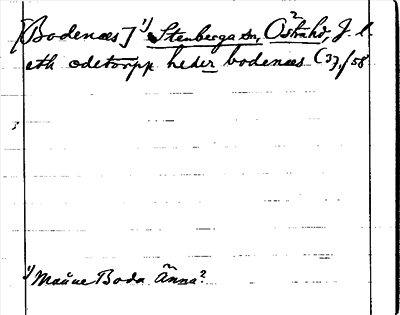 [Bodenæs] 1) Stenberga sn, Östra hd, J. l.
eth ödetorpp heder bodenæs (37/58
1) Månne Boda Änna?